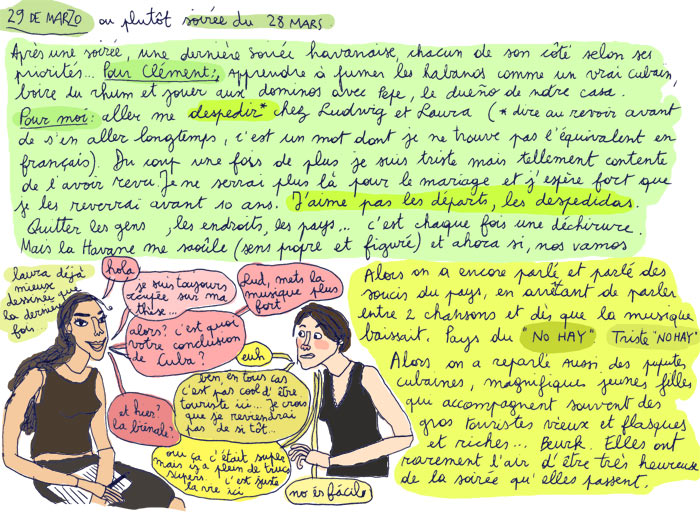 29 DE MARZO ou plutôt soirée du 28 MARS
Après une soirée, une dernière soirée havanaise, chacun de son côté selon ses
priorités... Pour Clément: Apprendre à fumer les habanos comme un vrai cubain,
boire du rhum et jouer aux dominos avec Pepe, le dueño de notre casa.
Pour moi: aller me despedir* chez Ludwig et Laura (* dire au revoir avant
de s'en aller longtemps, c'est un mot dont je ne trouve pas l'équivalent en
français). Du coup une fois de plus je suis triste mais tellement contente
de l'avoir revu. Je ne serrai plus là pour le mariage et j'espère fort que
je les reverrai avant 10 ans. J'aime pas les départs, les despedidas.
Quitter les gens, les endroits, les pays... c'est chaque fois une déchirure.
Mais la Havane me saoûle (sens propre et figuré) et ahora si, nos vamos
laura déjà
mieux
dessinée que
la dernière
fois...
hola
je suis toujours
occupée sur ma
thèse...
Lud, mets la
musique plus
fort
alors? c'est quoi
votre conclusion
de Cuba?
euh
ben, en tous cas
c'est pas cool d'être
touriste ici... Je crois
que je reviendrai
pas de si tôt...
et hier?
la biénale?
oui ça c'était super
mais il y a plein de trucs
supers. c'est juste
la vie ici
no es fácil
Alors on a encore parlé et parlé des
soucis du pays, en arrêtant de parler
entre 2 chansons et dès que la musique
baissait. Pays du "NO HAY" Triste "NO HAY"
Alors on a reparlé aussi des pyputes
cubaines, magnifiques jeunes filles
qui accompagnent souvent des
gros touristes vieux et flasques
et riches... Beurk. Elles ont
rarement l'air d'être très heureuse
de la soirée qu'elles passent.